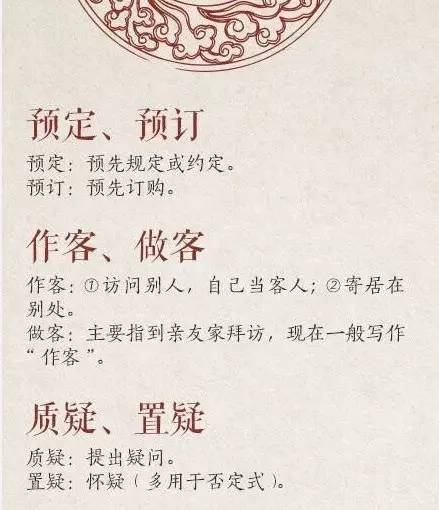 预定、预订
预定：预先规定或约定。
预订：预先订购。
作客、做客
作客：①访问别人，自己当客人；②寄居在
别处。
做客：主要指到亲友家拜访，现在一般写作
“作客”。
质疑、置疑
质疑：提出疑问。
置疑：怀疑（多用于否定式）。